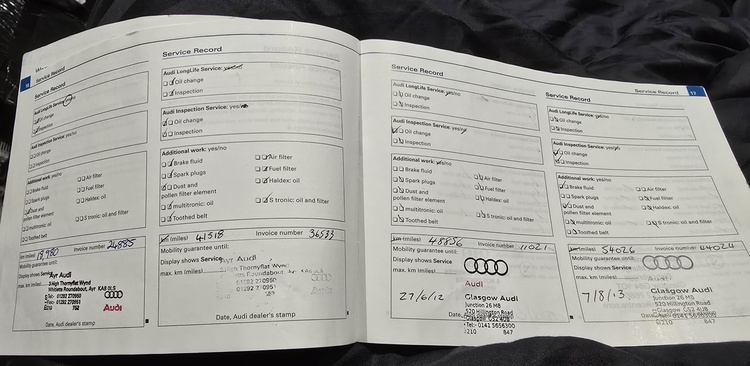 16
Service Record
Service Record
Audi LongLife Service: yes/no
Oil change
Inspection
Audi Inspection Service: yes/no
Oil change
Inspection
Additional work: yes/no
Brake fluid
Air filter
Spark plugs
Fuel filter
Dust and
pollen filter element
Haldex: oil
multitronic: oil
S tronic: oil and filter
Toothed belt
km (miles) 18,980 Invoice number 24885
Mobility guarantee until:
Display shows Service
max. km (miles)
Ayr Audi
3 High Thornyflat Wynd
Whitletts Roundabout, Ayr KA8 0LS
Tel: 01292 270950
Fax: 01292 270951
Audi
Date, Audi dealer's stamp
Service Record
Audi LongLife Service: yes/no
Oil change
Inspection
Audi Inspection Service: yes/no
Oil change
Inspection
Additional work: yes/no
Brake fluid
Air filter
Spark plugs
Fuel filter
Dust and
pollen filter element
Haldex: oil
multitronic: oil
S tronic: oil and filter
Toothed belt
km (miles) 41518 Invoice number 36533
Mobility guarantee until:
Display shows Service
max. km (miles)
Ayr Audi
3 High Thornyflat Wynd
01292 270950
01292 270951
Date, Audi dealer's stamp
Service Record
Audi LongLife Service: yes/no
Oil change
Inspection
Audi Inspection Service: yes/no
Oil change
Inspection
Additional work: yes/no
Brake fluid
Air filter
Spark plugs
Fuel filter
Dust and
pollen filter element
Haldex: oil
multitronic: oil
S tronic: oil and filter
Toothed belt
km (miles) 48856 Invoice number 11021
Mobility guarantee until:
Display shows Service
max. km (miles)
Audi
27/6/12
Glasgow Audi
Junction 26 M8
520 Hillington Road
Glasgow G52 4UB
Tel: 0141 5656300
210 847
Service Record 17
Service Record
Audi LongLife Service: yes/no
Oil change
Inspection
Audi Inspection Service: yes/no
Oil change
Inspection
Additional work: yes/no
Brake fluid
Air filter
Spark plugs
Fuel filter
Dust and
pollen filter element
Haldex: oil
multitronic: oil
S tronic: oil and filter
Toothed belt
km (miles) 54026 Invoice number 44024
Mobility guarantee until:
Display shows Service
max. km (miles)
7/8/13
Glasgow Audi
Junction 26 M8
520 Hillington Road
Glasgow G52 4UB
Tel: 0141 5656300
210 847